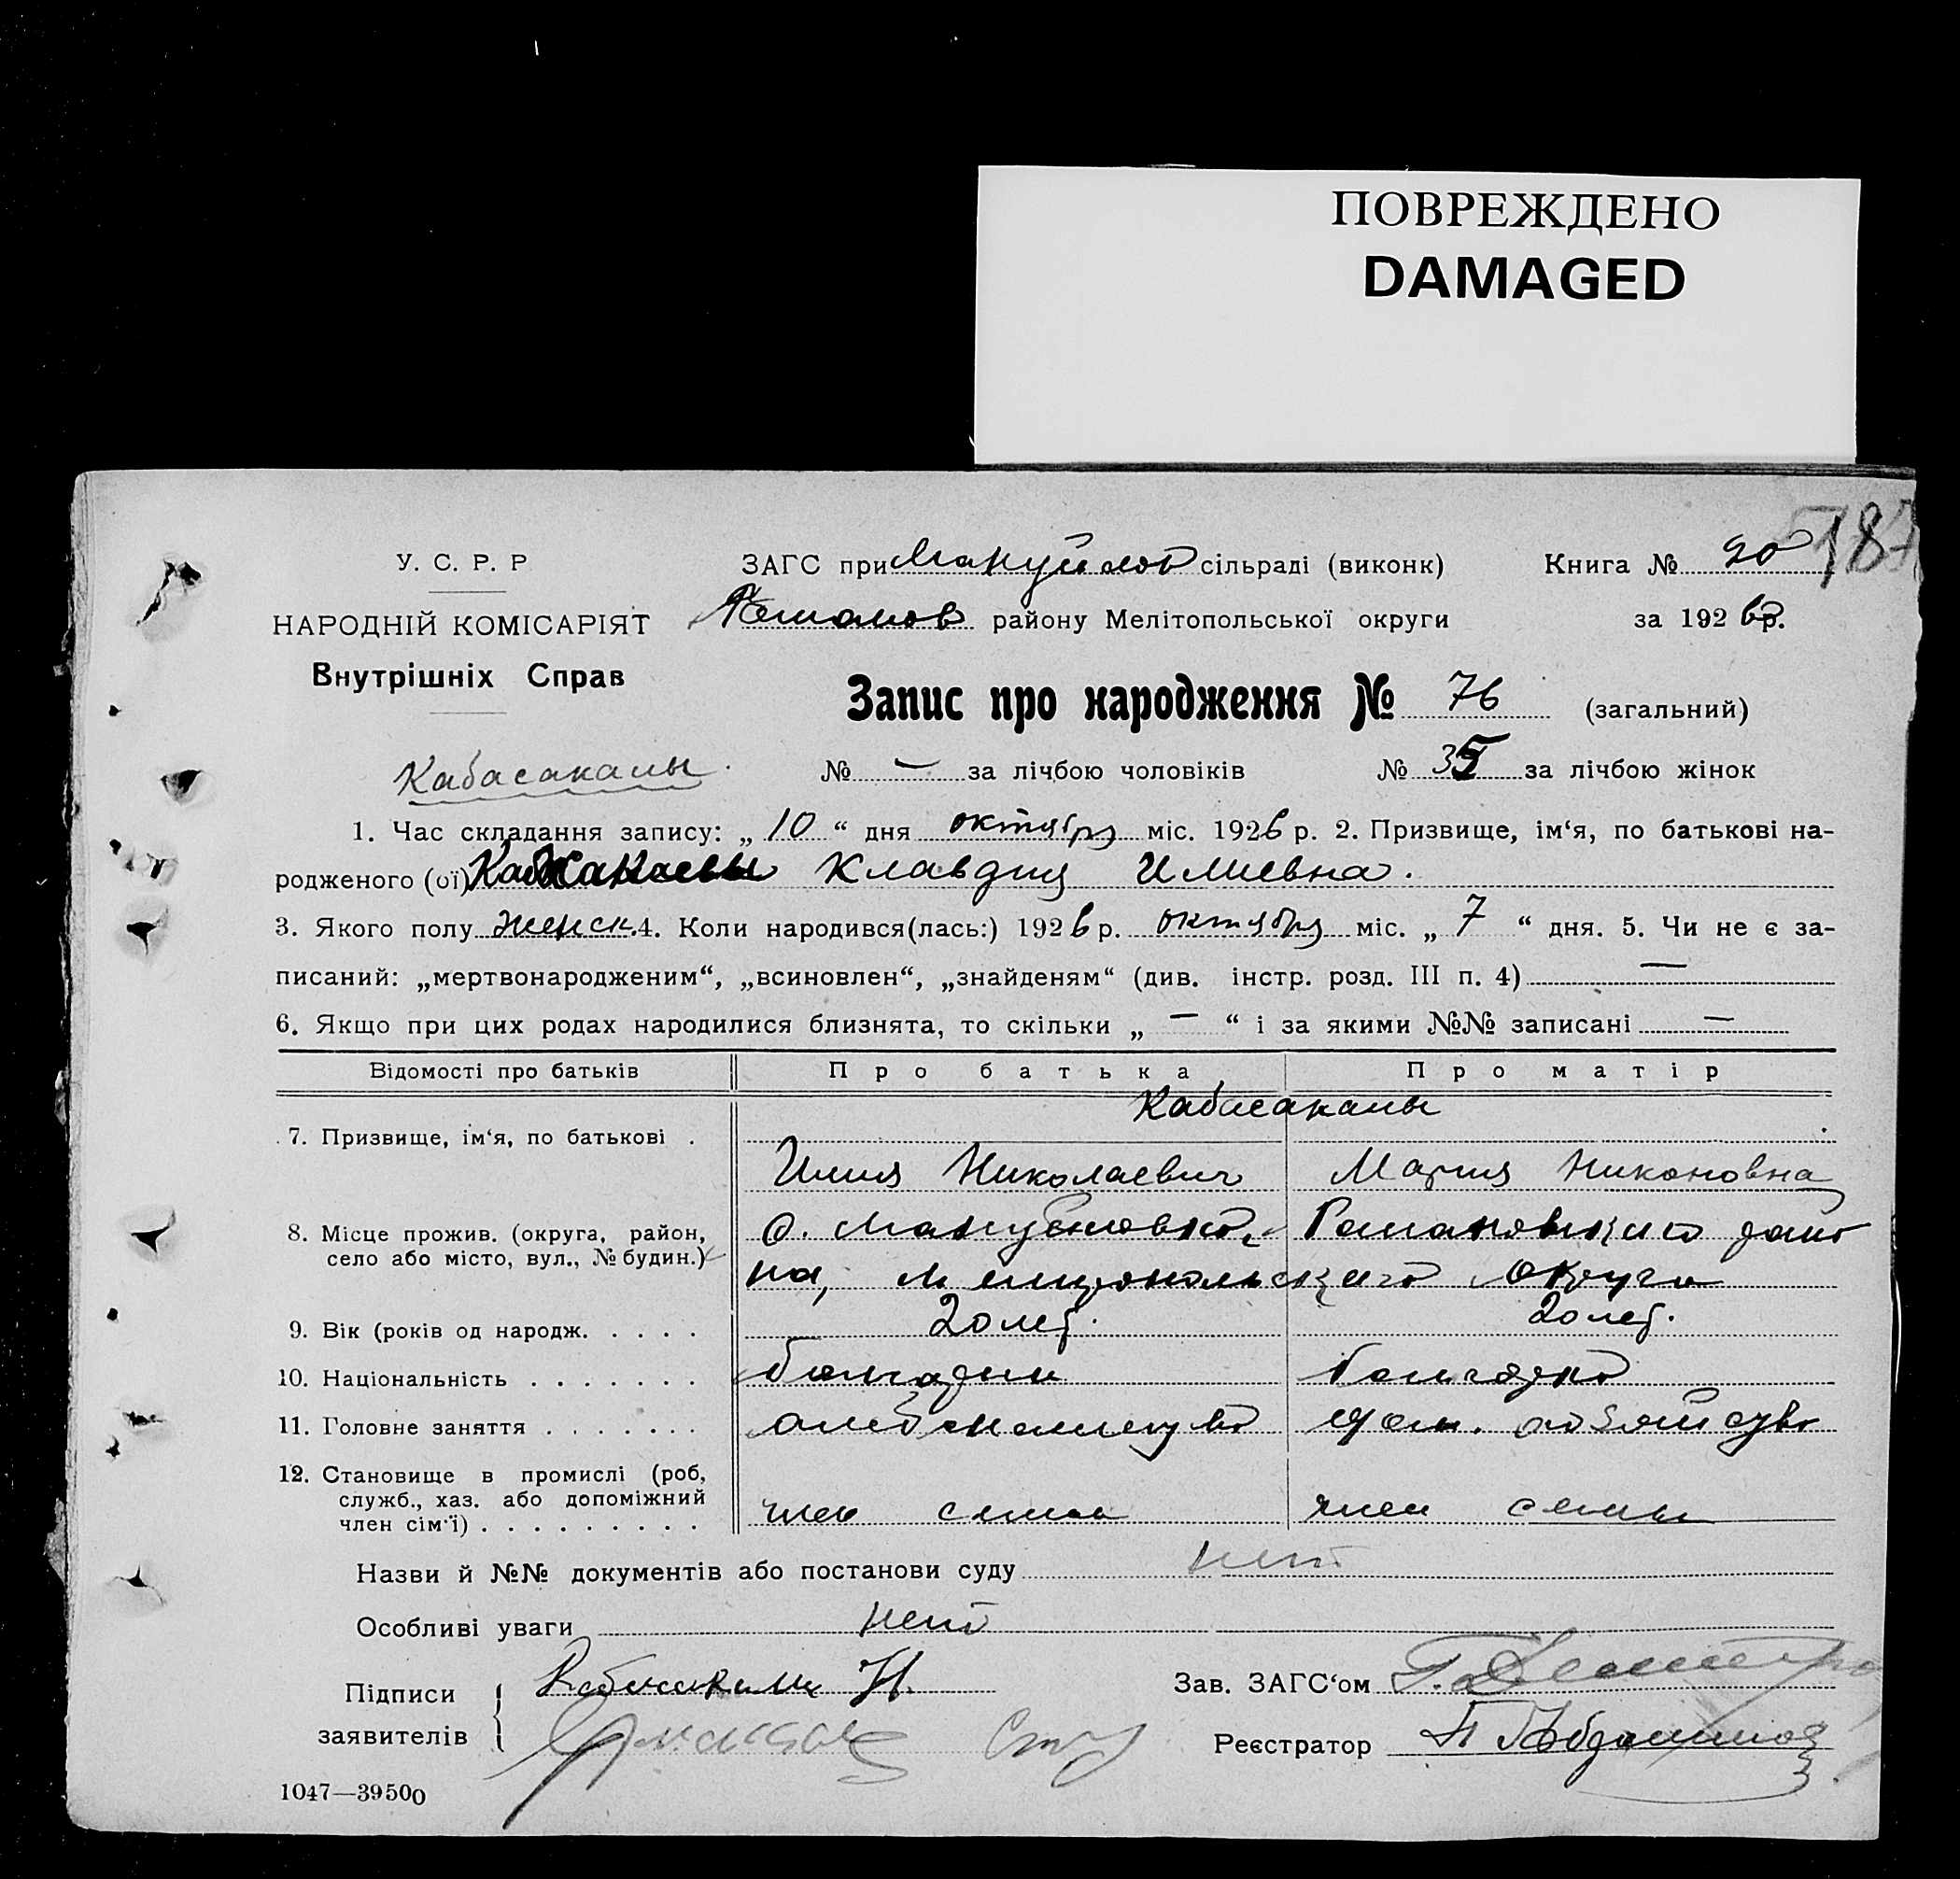 ПОВРЕЖДЕНО
DAMAGED
187
У. С. Р. Р
ЗАГС при Мануйлов сільраді (виконк)
Книга № 20
НАРОДНІЙ КОМІСАРІЯТ
Романов району Мелітопольської округи
за 1926 р.
Внутрішніх Справ
Запис про народження № 76 (загальний)
Кабасакалы.
№ — за лічбою чоловіків № 35 за лічбою жінок
1. Час складання запису: „ 10 “ дня октября міс. 1926 р. 2. Призвище, ім‘я, по батькові на-
родженого (ої) Клавдия Илиевна.
3. Якого полу женск. 4. Коли народився(лась:) 1926 р. октября міс. „ 7 “ дня. 5. Чи не є за-
писаний: „мертвонародженим“, „всиновлен“, „знайденям“ (див. інстр. розд. III п. 4) —
6. Якщо при цих родах народилися близнята, то скільки „ — “ і за якими №№ записані —
Відомості про батьків Про батька Про матір
Кабасакалы
7. Призвище, ім‘я, по батькові .
Илия Николаевич Мария Никоновна
8. Місце прожив. (округа, район, село або місто, вул., № будин.)
с. Мануйловка, Романовского райо
на, Мелитопольского Округа
9. Вік (років од народж. . . . . 20 лет. 20 лет.
10. Національність . . . . . . . болгарин болгарка
11. Головне заняття . . . . . . .
12. Становище в промислі (роб,
служб., хаз. або допоміжний
член сім‘ї) . . . . . . . . . член семьи член семьи
Назви й №№ документів або постанови суду нет
Особливі уваги нет
Підписи Кабасакалы И.
заявителів
Зав. ЗАГС‘ом
Реєстратор
1047—39500